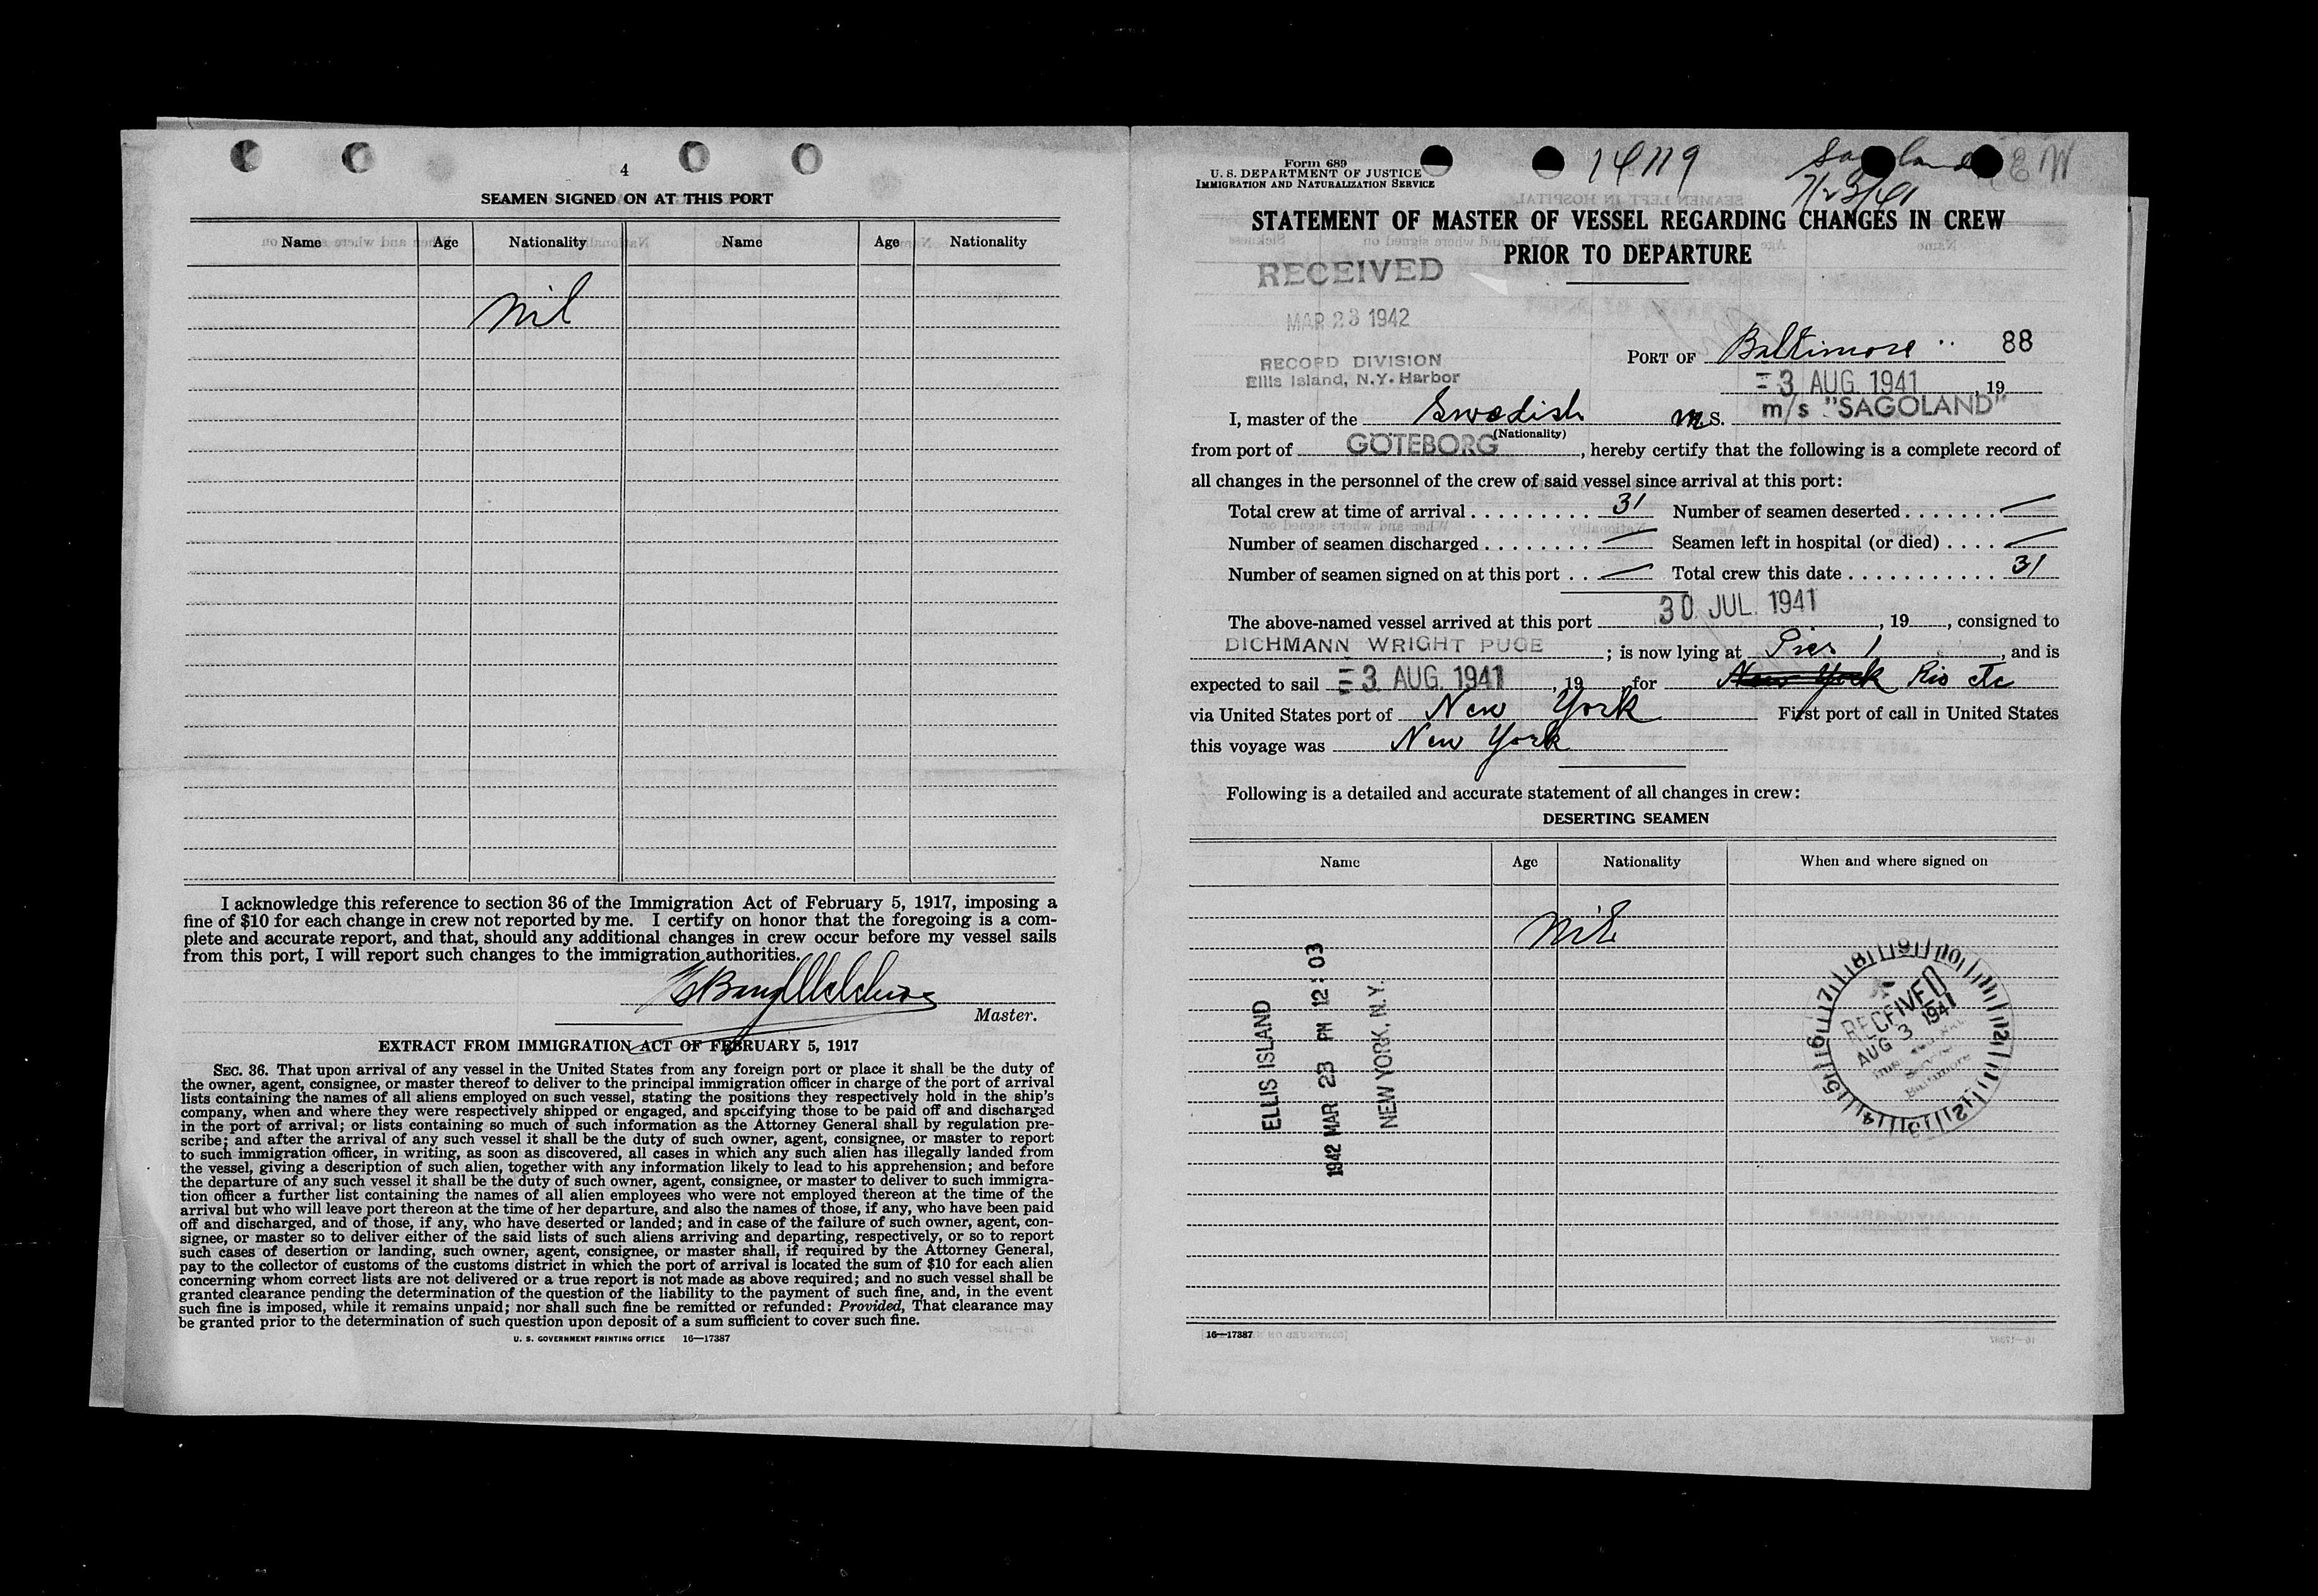 4
SEAMEN SIGNED ON AT THIS PORT
Name Age Nationality Name Age Nationality
nil
I acknowledge this reference to section 36 of the Immigration Act of February 5, 1917, imposing a
fine of $10 for each change in crew not reported by me. I certify on honor that the foregoing is a com-
plete and accurate report, and that, should any additional changes in crew occur before my vessel sails
from this port, I will report such changes to the immigration authorities.
Master.
EXTRACT FROM IMMIGRATION ACT OF FEBRUARY 5, 1917
SEC. 36. That upon arrival of any vessel in the United States from any foreign port or place it shall be the duty of
the owner, agent, consignee, or master thereof to deliver to the principal immigration officer in charge of the port of arrival
lists containing the names of all aliens employed on such vessel, stating the positions they respectively hold in the ship's
company, when and where they were respectively shipped or engaged, and specifying those to be paid off and discharged
in the port of arrival; or lists containing so much of such information as the Attorney General shall by regulation pre-
scribe; and after the arrival of any such vessel it shall be the duty of such owner, agent, consignee, or master to report
to such immigration officer, in writing, as soon as discovered, all cases in which any such alien has illegally landed from
the vessel, giving a description of such alien, together with any information likely to lead to his apprehension; and before
the departure of any such vessel it shall be the duty of such owner, agent, consignee, or master to deliver to such immigra-
tion officer a further list containing the names of all alien employees who were not employed thereon at the time of the
arrival but who will leave port thereon at the time of her departure, and also the names of those, if any, who have been paid
off and discharged, and of those, if any, who have deserted or landed; and in case of the failure of such owner, agent, con-
signee, or master so to deliver either of the said lists of such aliens arriving and departing, respectively, or so to report
such cases of desertion or landing, such owner, agent, consignee, or master shall, if required by the Attorney General,
pay to the collector of customs of the customs district in which the port of arrival is located the sum of $10 for each alien
concerning whom correct lists are not delivered or a true report is not made as above required; and no such vessel shall be
granted clearance pending the determination of the question of the liability to the payment of such fine, and, in the event
such fine is imposed, while it remains unpaid; nor shall such fine be remitted or refunded: Provided, That clearance may
be granted prior to the determination of such question upon deposit of a sum sufficient to cover such fine.
U. S. GOVERNMENT PRINTING OFFICE 16—17387
Form 689
U. S. DEPARTMENT OF JUSTICE
IMMIGRATION AND NATURALIZATION SERVICE
14119
7/23/41
STATEMENT OF MASTER OF VESSEL REGARDING CHANGES IN CREW
PRIOR TO DEPARTURE
RECEIVED
MAR 23 1942
RECORD DIVISION
Ellis Island, N.Y. Harbor
PORT OF Baltimore 88
= 3 AUG. 1941, 19
I, master of the Swedish m.S. m/s "SAGOLAND"
(Nationality)
from port of GÖTEBORG, hereby certify that the following is a complete record of
all changes in the personnel of the crew of said vessel since arrival at this port:
Total crew at time of arrival 31 Number of seamen deserted —
Number of seamen discharged — Seamen left in hospital (or died) —
Number of seamen signed on at this port — Total crew this date 31
The above-named vessel arrived at this port 30 JUL. 1941, 19, consigned to
DICHMANN WRIGHT PUGE; is now lying at Pier 1, and is
expected to sail = 3 AUG. 1941, 19, for New York Rio etc
via United States port of New York First port of call in United States
this voyage was New York
Following is a detailed and accurate statement of all changes in crew:
DESERTING SEAMEN
Name Age Nationality When and where signed on
nil
ELLIS ISLAND
1942 MAR 23 PM 12:03
NEW YORK, N.Y.
RECEIVED
AUG 3 1941
Baltimore
16—17387